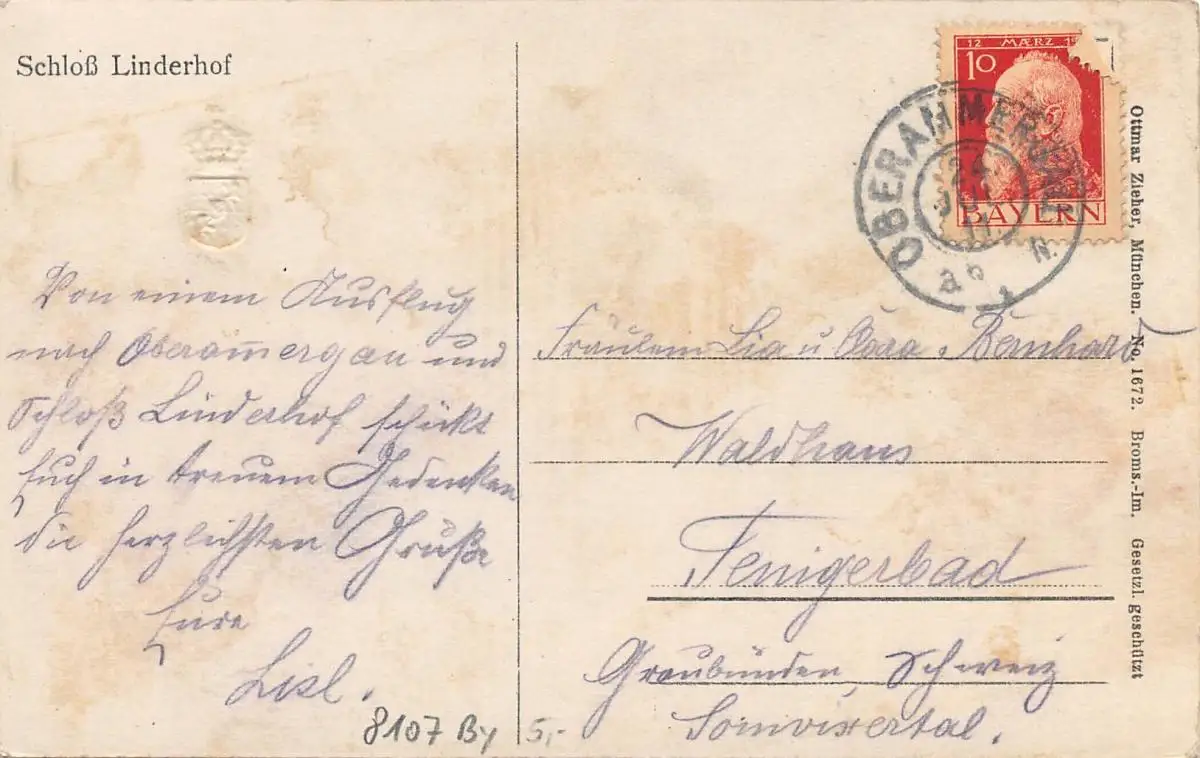 Schloß Linderhof
Von einem Ausflug
nach Oberam̅ergau und
Schloß Linderhof schickt
Euch in treuem Gedenken
die herzlichsten Grüße
Eure
Lisl.
8107 By 5,-
12 MÆRZ 19
10
BAYERN
OBERAMMERGAU
24
JUL
11
a 6 N.
Fräulein Lia u Bernhard
Waldhaus
Tenigerbad
Graubünden, Schweiz
Somvixertal.
Ottmar Zieher, München. No. 1672. Broms.-Im. Gesetzl. geschützt